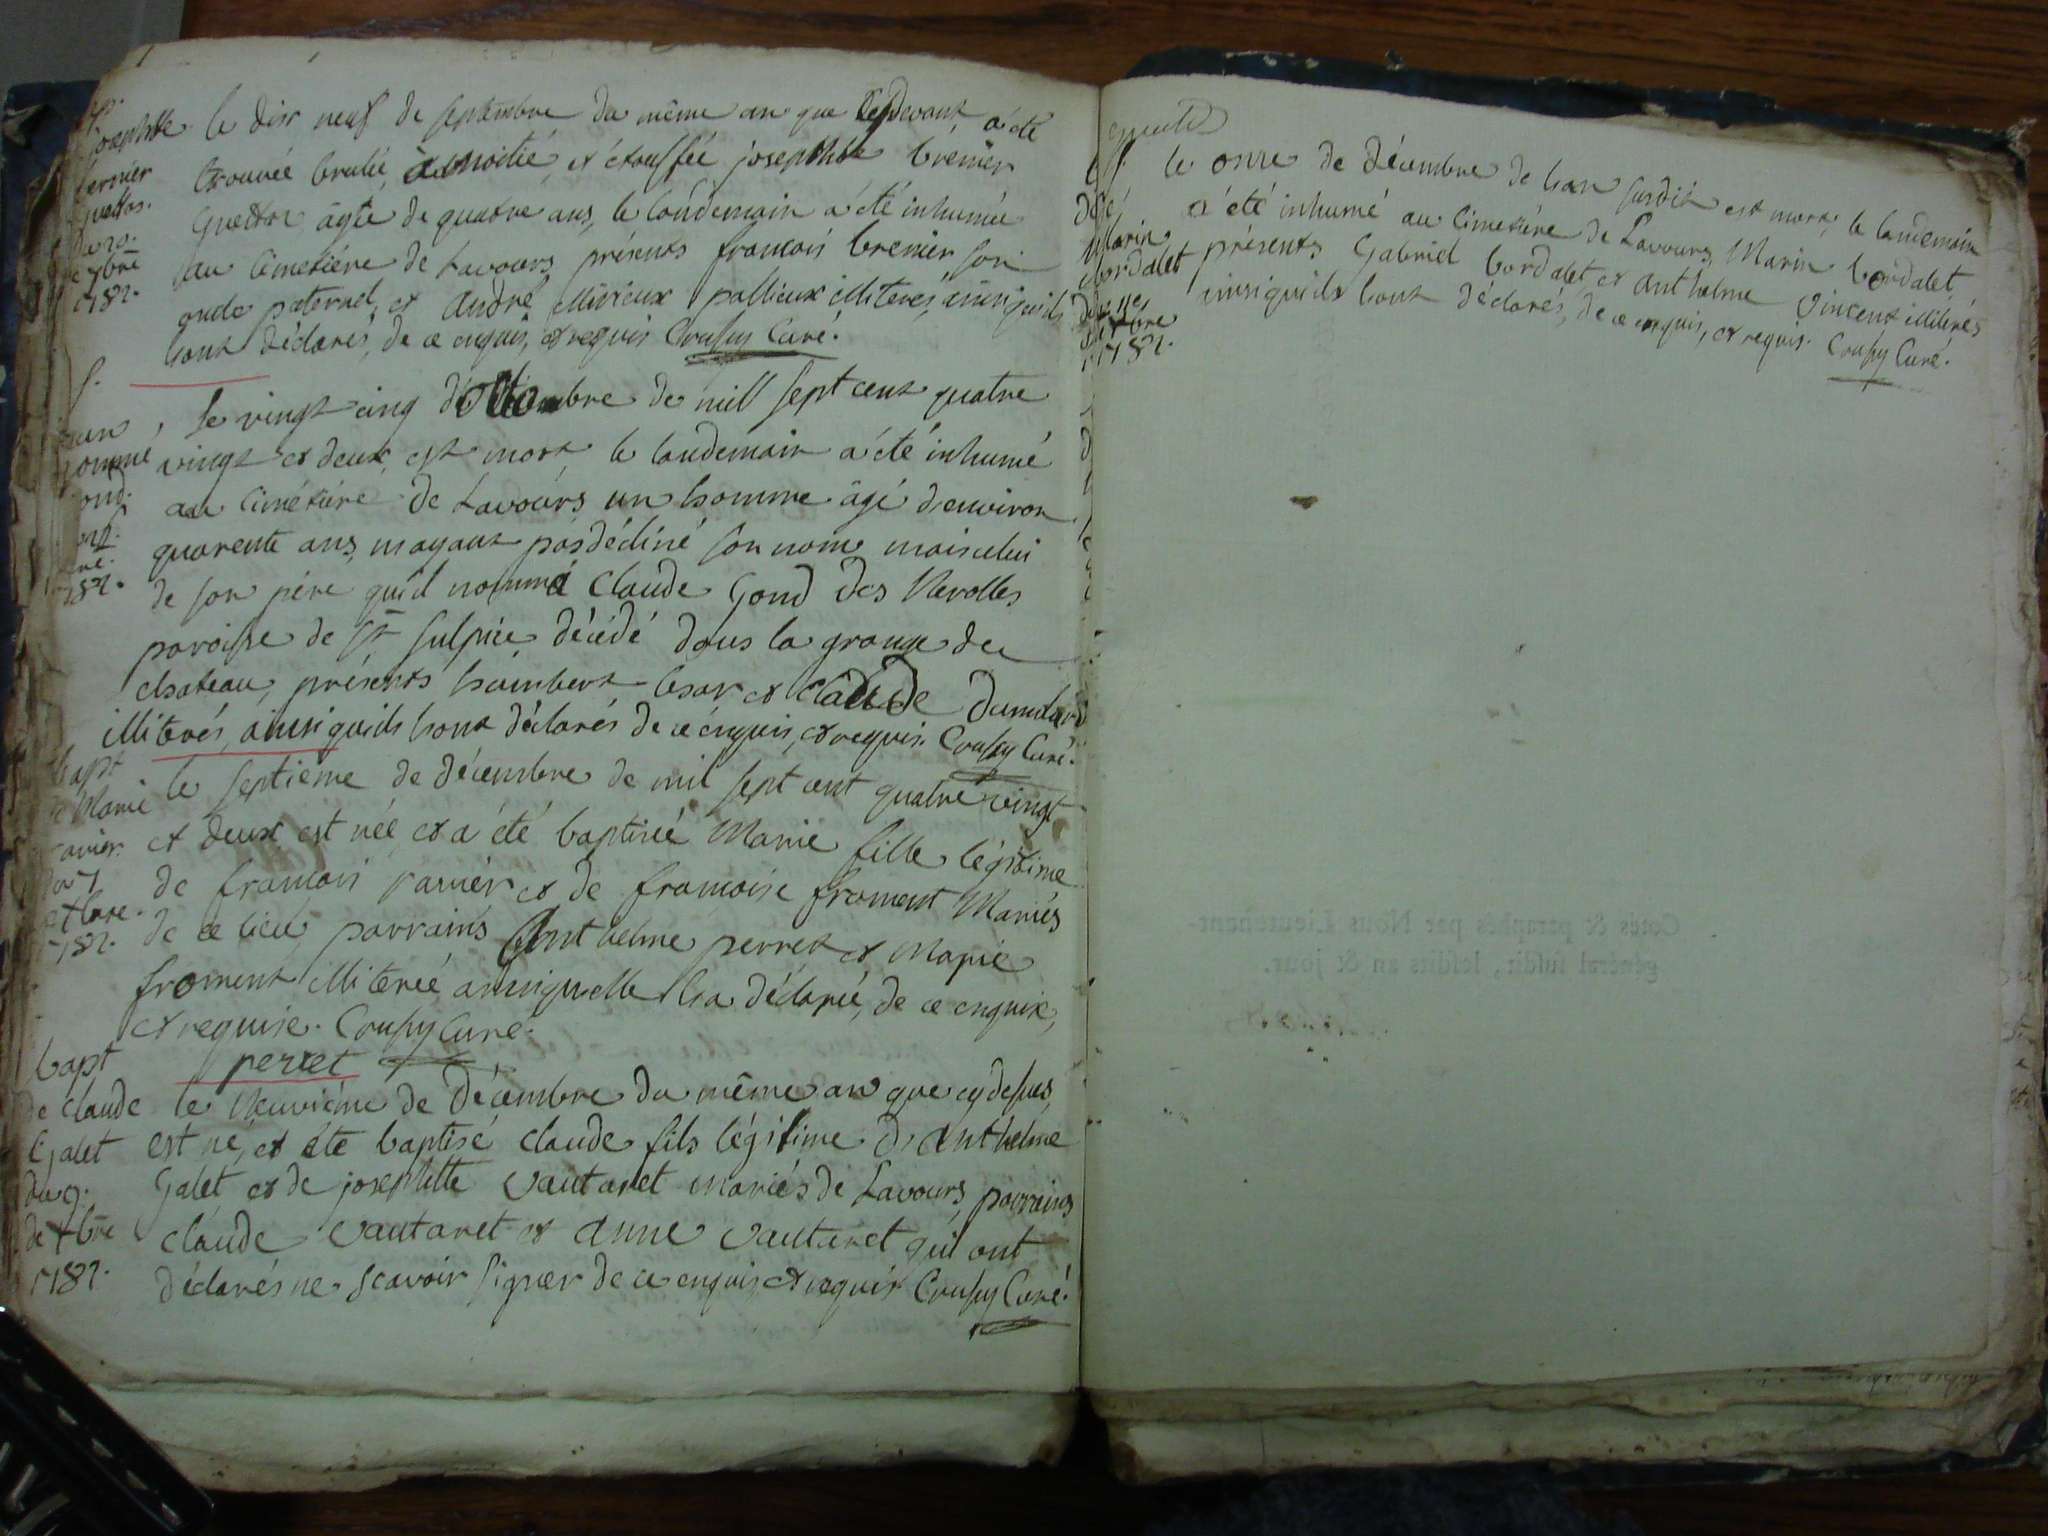 josephte
bernier
guettaz.
du 20.
7bre
1782.
le dix neuf de septembre du même an que cydevant a été
trouvée brulée, à moitié, et étouffée josephte brenier
Guettaz âgée de quatre ans, le landemain a été inhumée
au cimetière de Lavours, présents francois brenier son
oncle paternel, et andré Mivieux pollieux illiterés, ainsi quils
lont déclarés, de ce enquis, et requis Croussy Curé.
homme
gond.
1782.
le vingt cinq d'octombre de mill sept cent quatre
vingt et deux, est mort, le landemain a été inhumé
au cimetière de Lavours un homme âgé d'environ
quarente ans, nayant pas décliné son nom, mais celui
de son père quil nomma Claude Gond des Nerolles
paroisse de St Sulpice, décédé dans la grange du
chateau, présents humbert et Claude Dumolard
illiterés, ainsi quils lont déclarés de ce enquis, et requis. Croussy Curé.
bapt
de Marie
ravier
du 7
xbre
1782.
le septième de décembre de mil sept cent quatre vingt
et deux, est née, et a été baptisée Marie fille légitime
de francois ravier et de francoise froment Mariés
de ce lieu, parrains Anthelme perret et Marie
froment illiterée ainsi quelle la déclaré, de ce enquise,
et requise. Croussy Curé.
perret
bapt
de claude
Galet
du 9.
de xbre
1782.
le Neuvième de décembre du même an que cy dessus,
est né, et été baptisé claude fils légitime d'anthelme
Galet et de josephte vautaret mariés de Lavours, parrains
claude vautaret et anne vautaret qui ont
déclarés ne scavoir signer de ce enquis, et requis Croussy Curé.
Marin
bordalet
du 11e
xbre
1782.
le onze de décembre de lan susdit est mort, le landemain
a été inhumé au cimetière de Lavours Marin bordalet
présents Gabriel bordalet, et anthelme vincent illiterés
ainsi quils lont déclarés, de ce enquis, et requis. Croussy Curé.
Cotés & paraphés par Nous Lieutenant-
général susdit, lesdits an & jour.